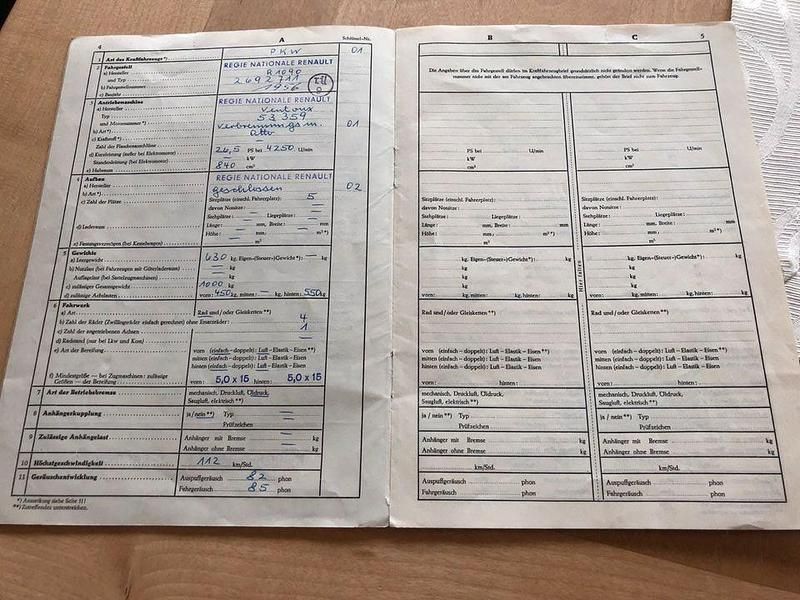 4 A Schlüssel-Nr.
1 Art des Kraftfahrzeugs*) PKW 01
2 Fahrgestell
a) Hersteller REGIE NATIONALE RENAULT
und Typ R1090
b) Fahrgestellnummer 2692711
c) Baujahr 1956
3 Antriebsmaschine
a) Hersteller REGIE NATIONALE RENAULT
Typ Ventoux
und Motornummer*) 53 359
b) Art*) Verbrennungsm. 01
c) Kraftstoff*) Otto
Zahl der Flaschenanschlüsse —
d) Nutzleistung (außer bei Elektromotor) 26,5 PS bei 4250 U/min
Stundenleistung (bei Elektromotor) — kW
e) Hubraum 840 cm³
4 Aufbau
a) Hersteller REGIE NATIONALE RENAULT
b) Art*) geschlossen 02
c) Zahl der Plätze Sitzplätze (einschl. Fahrerplatz): 5
davon Notsitze: —
Stehplätze: — Liegeplätze: —
d) Laderaum Länge: — mm, Breite: — mm
Höhe: — mm, — m²*)
e) Fassungsvermögen (bei Kesselwagen) — m³
5 Gewichte
a) Leergewicht 630 kg, Eigen-(Steuer-)Gewicht*): — kg
b) Nutzlast (bei Fahrzeugen mit Güterladeraum) — kg
Aufliegelast (bei Sattelzugmaschinen) — kg
c) zulässiges Gesamtgewicht 1000 kg
d) zulässige Achslasten vorn: 450 kg, mitten: — kg, hinten: 550 kg
6 Fahrwerk
a) Art Rad und/oder Gleisketten**)
b) Zahl der Räder (Zwillingsräder einfach gerechnet) ohne Ersatzräder: 4
c) Zahl der angetriebenen Achsen 1
d) Radstand (nur bei Lkw und Kom) —
e) Art der Bereifung vorn (einfach–doppelt): Luft – Elastik – Eisen**)
mitten (einfach–doppelt): Luft – Elastik – Eisen
hinten (einfach–doppelt): Luft – Elastik – Eisen
f) Mindestgröße — bei Zugmaschinen: zulässige
Größen — der Bereifung vorn: 5,0 x 15 hinten: 5,0 x 15
7 Art der Betriebsbremse mechanisch, Druckluft, Öldruck,
Saugluft, elektrisch**)
8 Anhängerkupplung ja / nein**) Typ —
Prüfzeichen —
9 Zulässige Anhängelast Anhänger mit Bremse — kg
Anhänger ohne Bremse — kg
10 Höchstgeschwindigkeit 112 km/Std.
11 Geräuschentwicklung Auspuffgeräusch 82 phon
Fahrgeräusch 85 phon
*) Anmerkung siehe Seite 11!
**) Zutreffendes unterstreichen.
B C 5
Die Angaben über das Fahrgestell dürfen im Kraftfahrzeugbrief grundsätzlich nicht geändert werden. Wenn die Fahrgestell-
nummer nicht mit der am Fahrzeug angebrachten übereinstimmt, gehört der Brief nicht zum Fahrzeug.
PS bei U/min PS bei U/min
kW kW
cm³ cm³
Sitzplätze (einschl. Fahrerplatz): Sitzplätze (einschl. Fahrerplatz):
davon Notsitze: davon Notsitze:
Stehplätze: Liegeplätze: Stehplätze: Liegeplätze:
Länge: mm, Breite: mm Länge: mm, Breite: mm
Höhe: mm, m²*) Höhe: mm, m²*)
m³ m³
Hier falten
kg, Eigen-(Steuer-)Gewicht*): kg kg, Eigen-(Steuer-)Gewicht*): kg
kg kg
kg kg
kg kg
vorn: kg, mitten: kg, hinten: kg vorn: kg, mitten: kg, hinten: kg
Rad und/oder Gleisketten**) Rad und/oder Gleisketten**)
vorn (einfach–doppelt): Luft – Elastik – Eisen**) vorn (einfach–doppelt): Luft – Elastik – Eisen**)
mitten (einfach–doppelt): Luft – Elastik – Eisen mitten (einfach–doppelt): Luft – Elastik – Eisen
hinten (einfach–doppelt): Luft – Elastik – Eisen hinten (einfach–doppelt): Luft – Elastik – Eisen
vorn: hinten: vorn: hinten:
mechanisch, Druckluft, Öldruck, mechanisch, Druckluft, Öldruck,
Saugluft, elektrisch**) Saugluft, elektrisch**)
ja / nein**) Typ ja / nein**) Typ
Prüfzeichen Prüfzeichen
Anhänger mit Bremse kg Anhänger mit Bremse kg
Anhänger ohne Bremse kg Anhänger ohne Bremse kg
km/Std. km/Std.
Auspuffgeräusch phon Auspuffgeräusch phon
Fahrgeräusch phon Fahrgeräusch phon